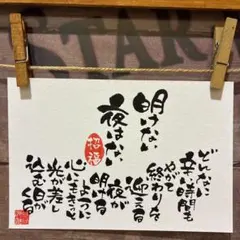 STAR
明けない
夜はない
招福
どんなに
辛い時間も
やがて
終わりを
迎える
夜が
明ける
ように
心にもきっと
光が差し
込む日が
くる